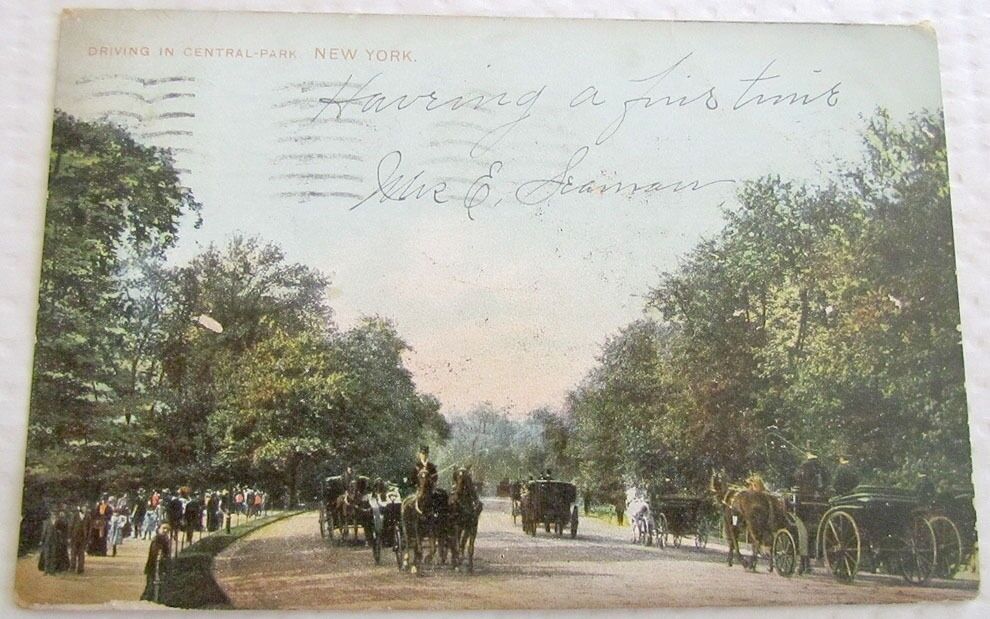 DRIVING IN CENTRAL-PARK. NEW YORK.
Having a fine time
Mrs E. Seaman